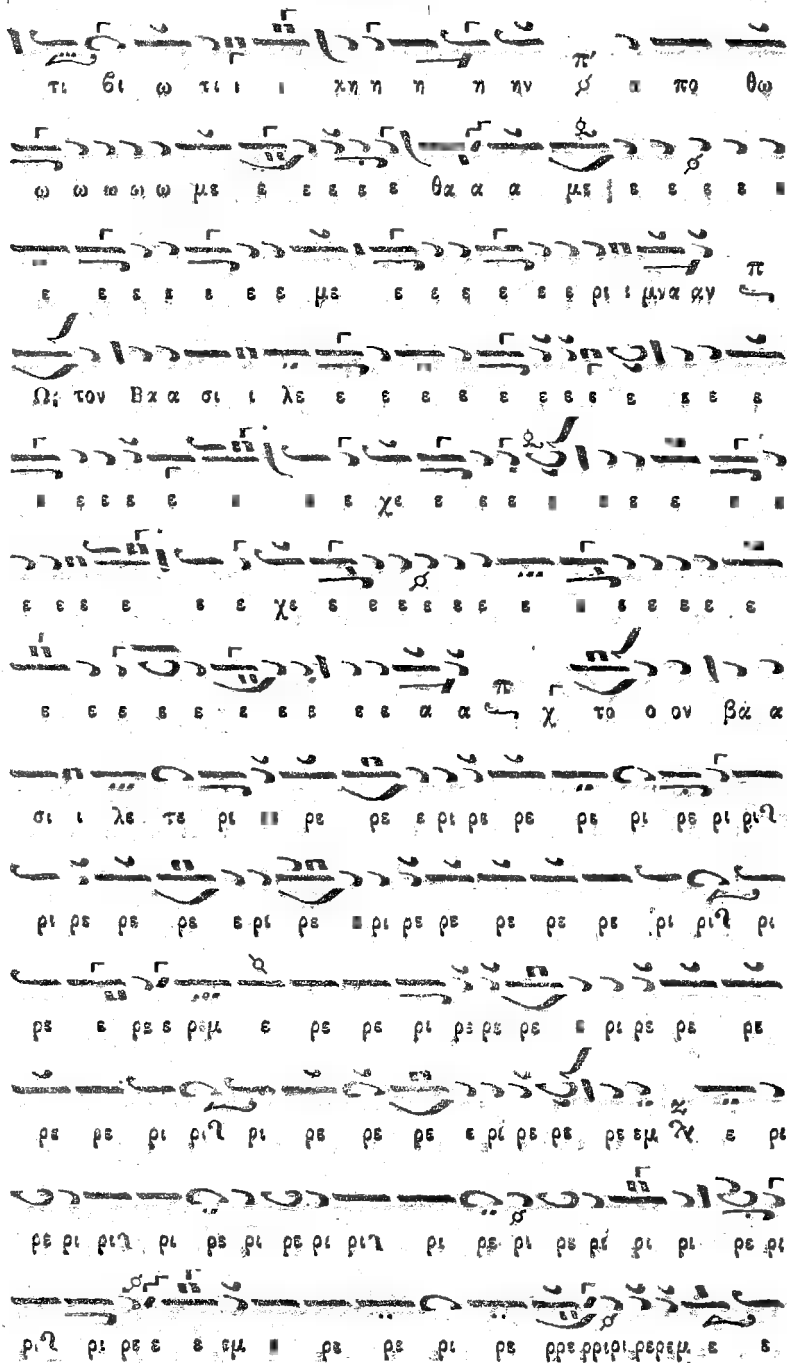 τι βι ω τι ι κη η η η ην α πο θω
ω ω ω ω ω με ε ε ε ε ε θα α α με ε ε ε ε
ε ε ε ε ε ε ε με ε ε ε ε ε ε ε ρι ι μνα αν
Ως τον Βα α σι ι λε ε ε ε ε ε ε ε ε ε ε ε ε
ε ε ε ε ε χε ε ε ε ε ε
ε ε ε ε ε ε χε ε ε ε ε ε ε ε ε ε ε ε ε ε
ε ε ε ε ε ε ε ε ε ε α α χ το ο ον βα α
σι ι λε τε ρι ρε ρε ε ρι ρε ρε ρε ρι ρε ρι ρι
ρι ρε ρε ρε ε ρι ρε ρι ρε ρε ρε ρε ρε ρι ρι ρι
ρε ε ρε ε ρεμ ε ρε ρε ρι ρε ρε ρε ε ρι ρε ρε ρε
ρε ρε ρι ρι ρι ρε ρε ρε ε ρι ρε ρε ρε εμ ε ρι
ρε ρι ρι ρι ρε ρι ρε ρι ρι ρι ρε ρι ρε ρι ρι ρι ρε ρι
ρι ρι ρε ε ε εμ ρε ρε ρι ρε ρρε ρρι ρι ρε ρεμ ε ε